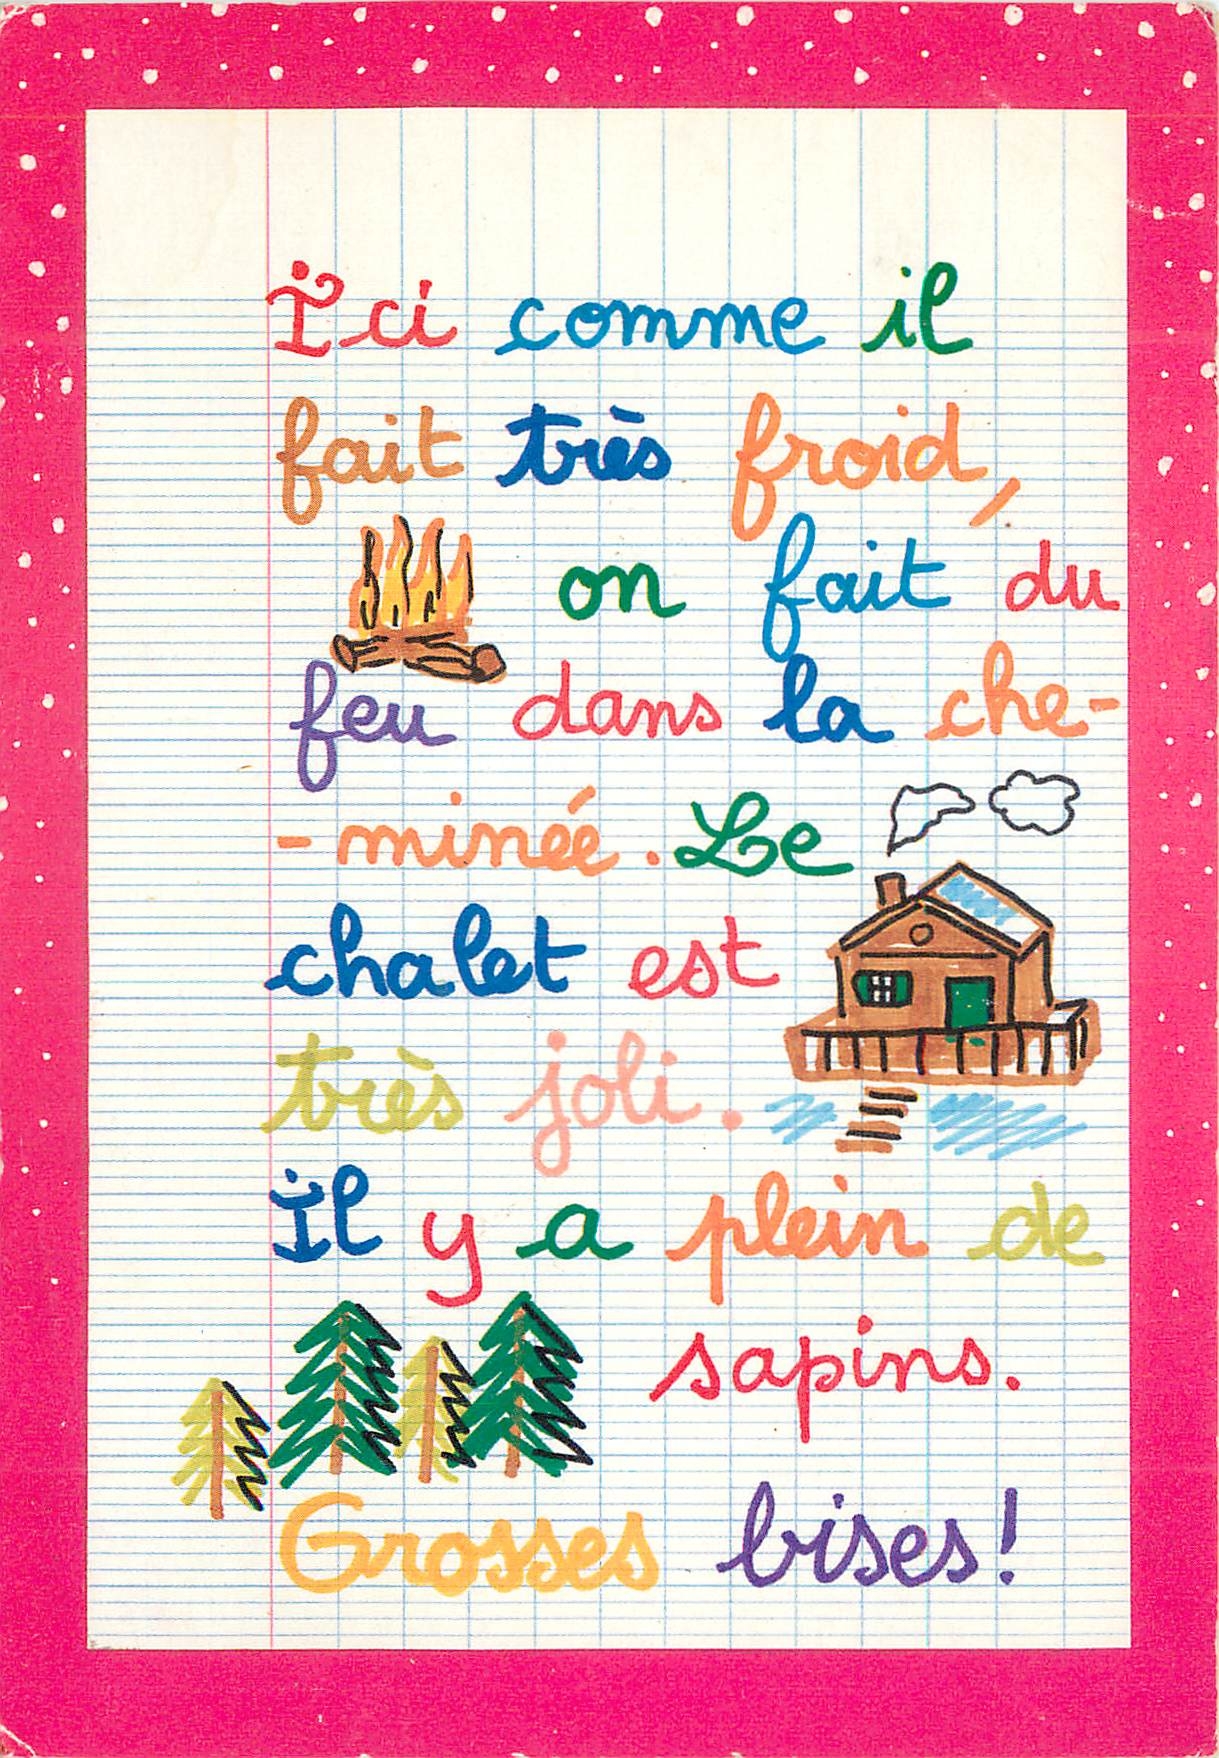 Ici comme il
fait très froid,
on fait du
feu dans la che-
- minée. Le
chalet est
très joli.
Il y a plein de
sapins.
Grosses bises!